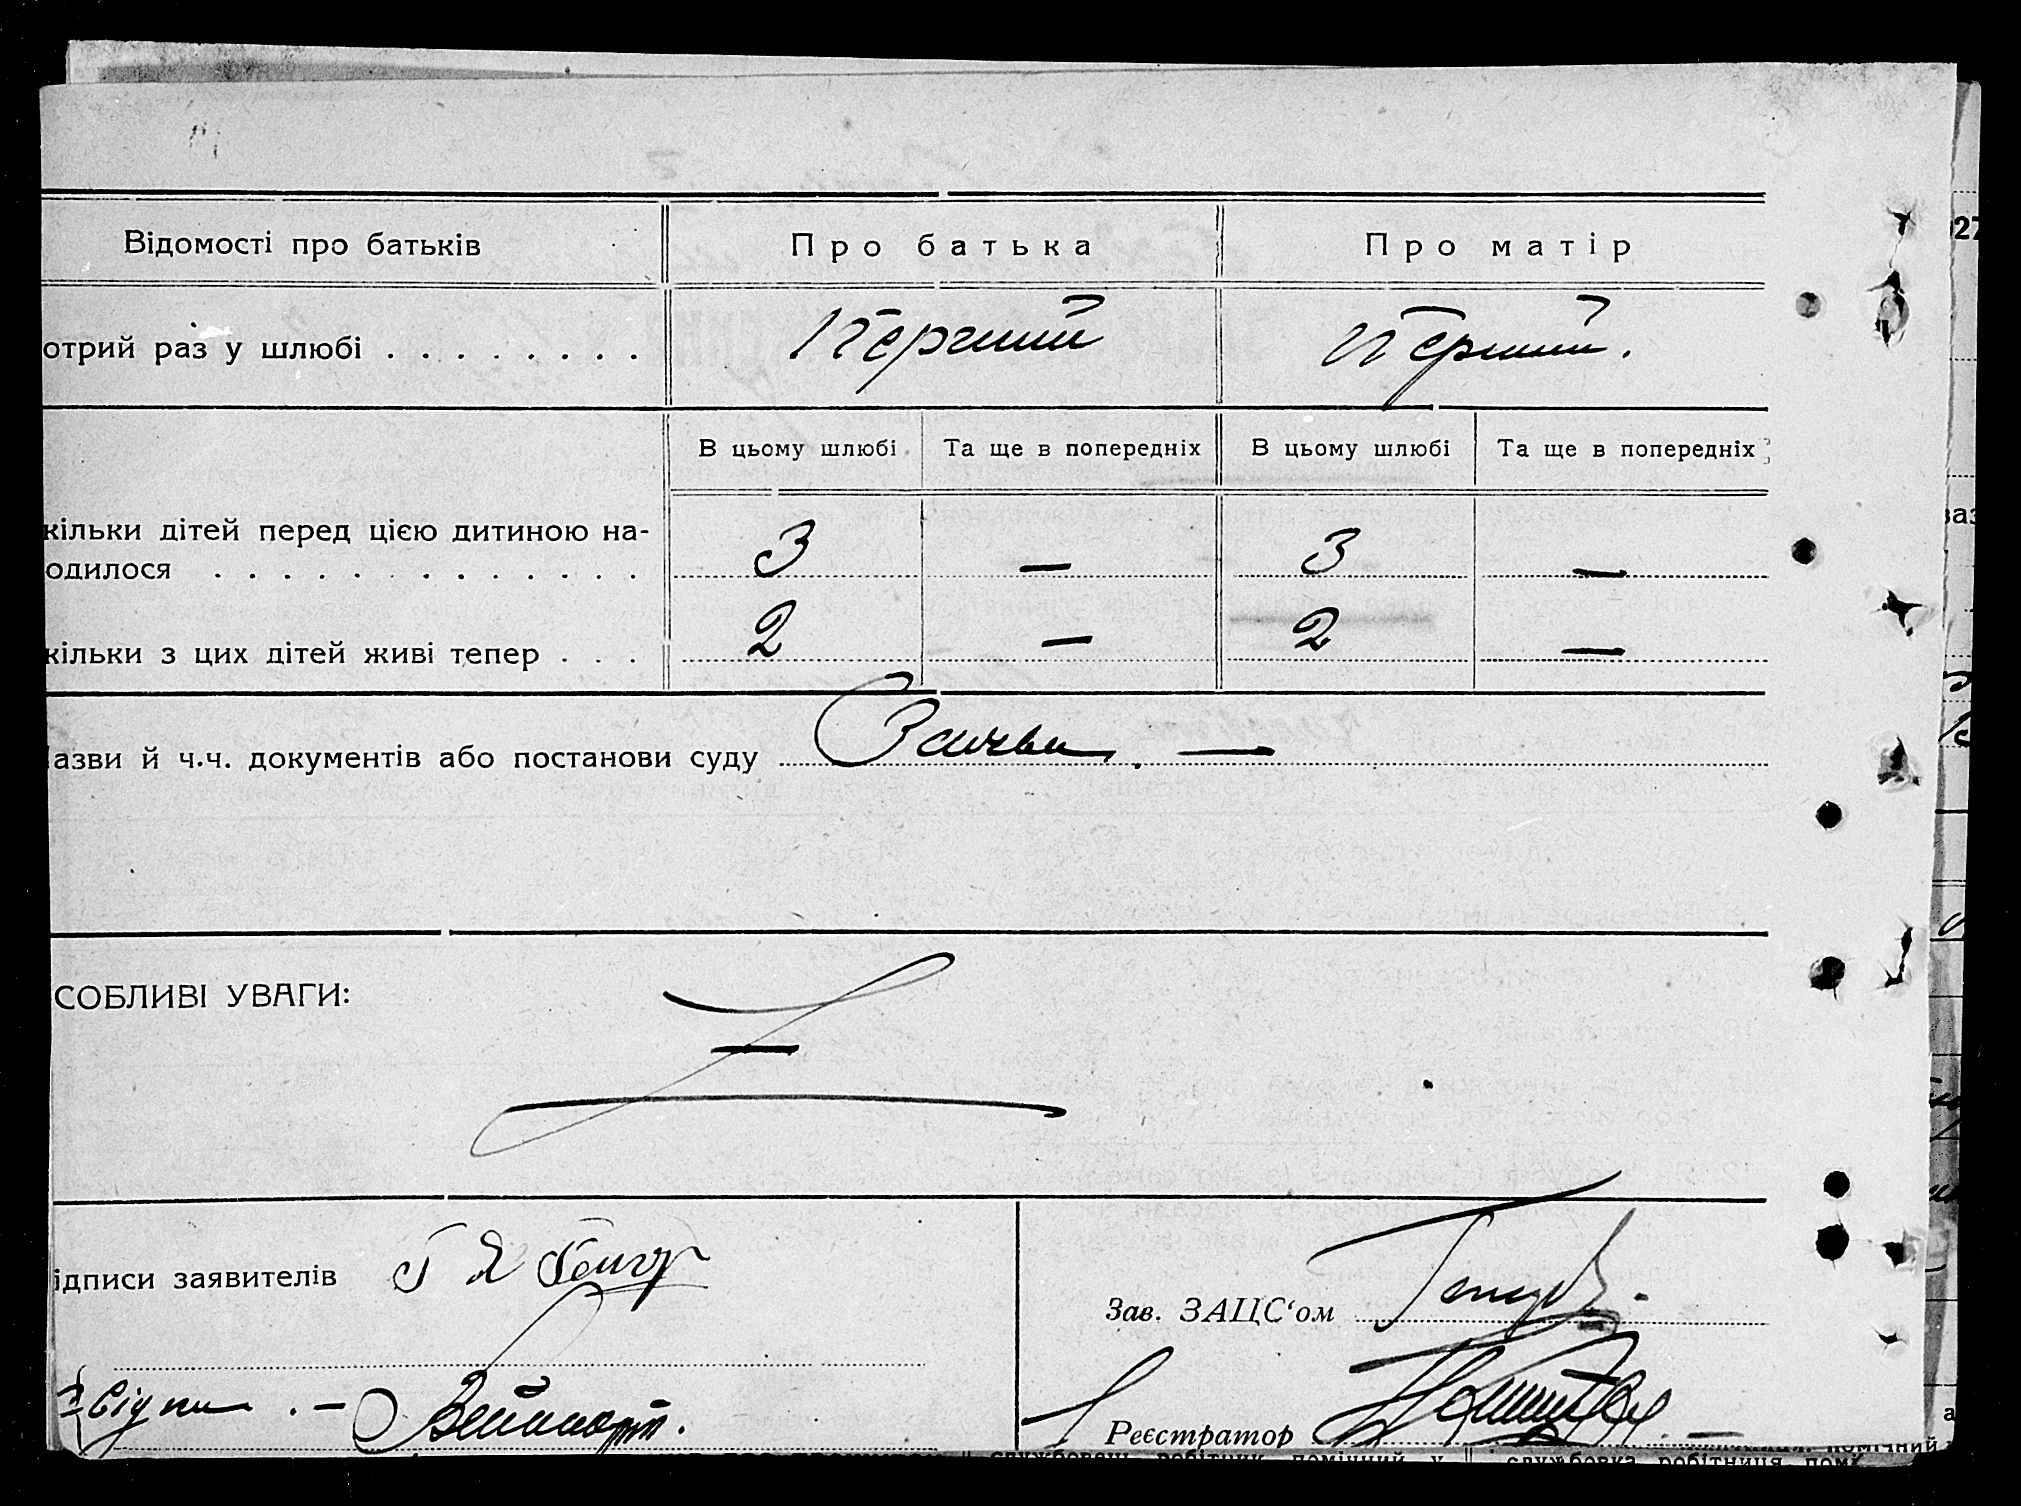 Відомості про батьків Про батька Про матір
отрий раз у шлюбі . . . . . . . . Перший Перший.
В цьому шлюбі Та ще в попередніх В цьому шлюбі Та ще в попередніх
кільки дітей перед цією дитиною на-
одилося . . . . . . . . . . . . . 3 — 3 —
кільки з цих дітей живі тепер . . . 2 — 2 —
азви й ч.ч. документів або постанови суду
СОБЛИВІ УВАГИ:
—
ідписи заявителів
Зав. ЗАЦС‘ом
Реєстратор
службовець робітник помічний у службовка робітниця